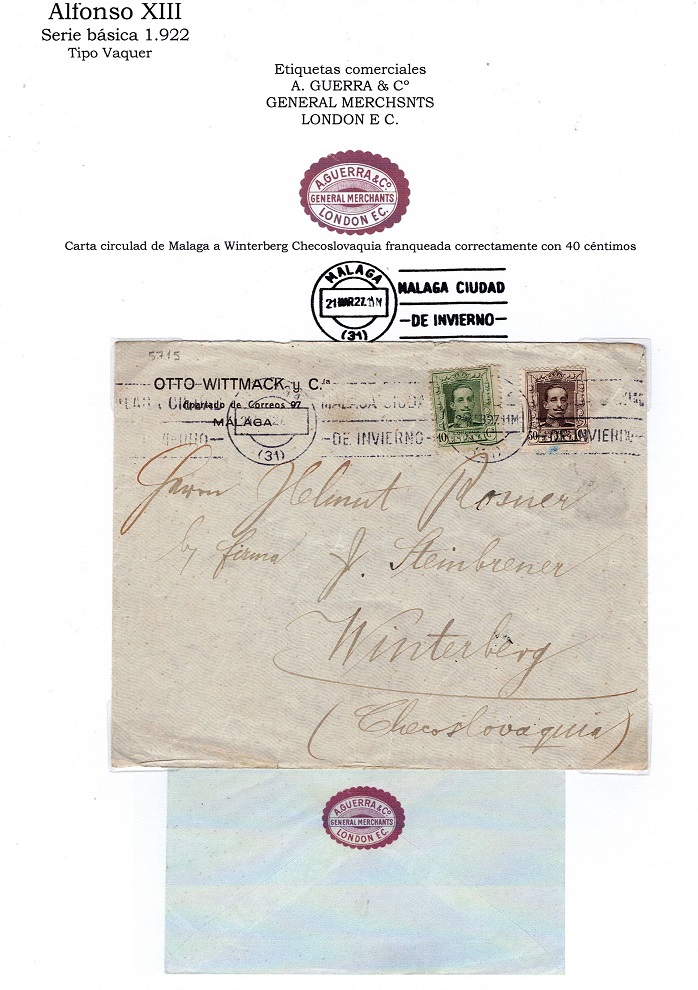 Alfonso XIII
Serie básica 1.922
Tipo Vaquer
Etiquetas comerciales
A. GUERRA & Cº
GENERAL MERCHSNTS
LONDON E C.
A. GUERRA & Cº
GENERAL MERCHANTS
LONDON E.C.
Carta circulad de Malaga a Winterberg Checoslovaquia franqueada correctamente con 40 céntimos
MALAGA
21 MAR 27. 11M
(31)
MALAGA CIUDAD
-DE INVIERNO-
5715
OTTO WITTMACK y C.ia
Apartado de Correos 97
MÁLAGA
(31)
MALAGA CIUDAD
-DE INVIERNO-
Herrn Helmut Rosner
firma J. Steinbrener
Winterberg
(Checoslovaquia)
A. GUERRA & Cº
GENERAL MERCHANTS
LONDON E.C.